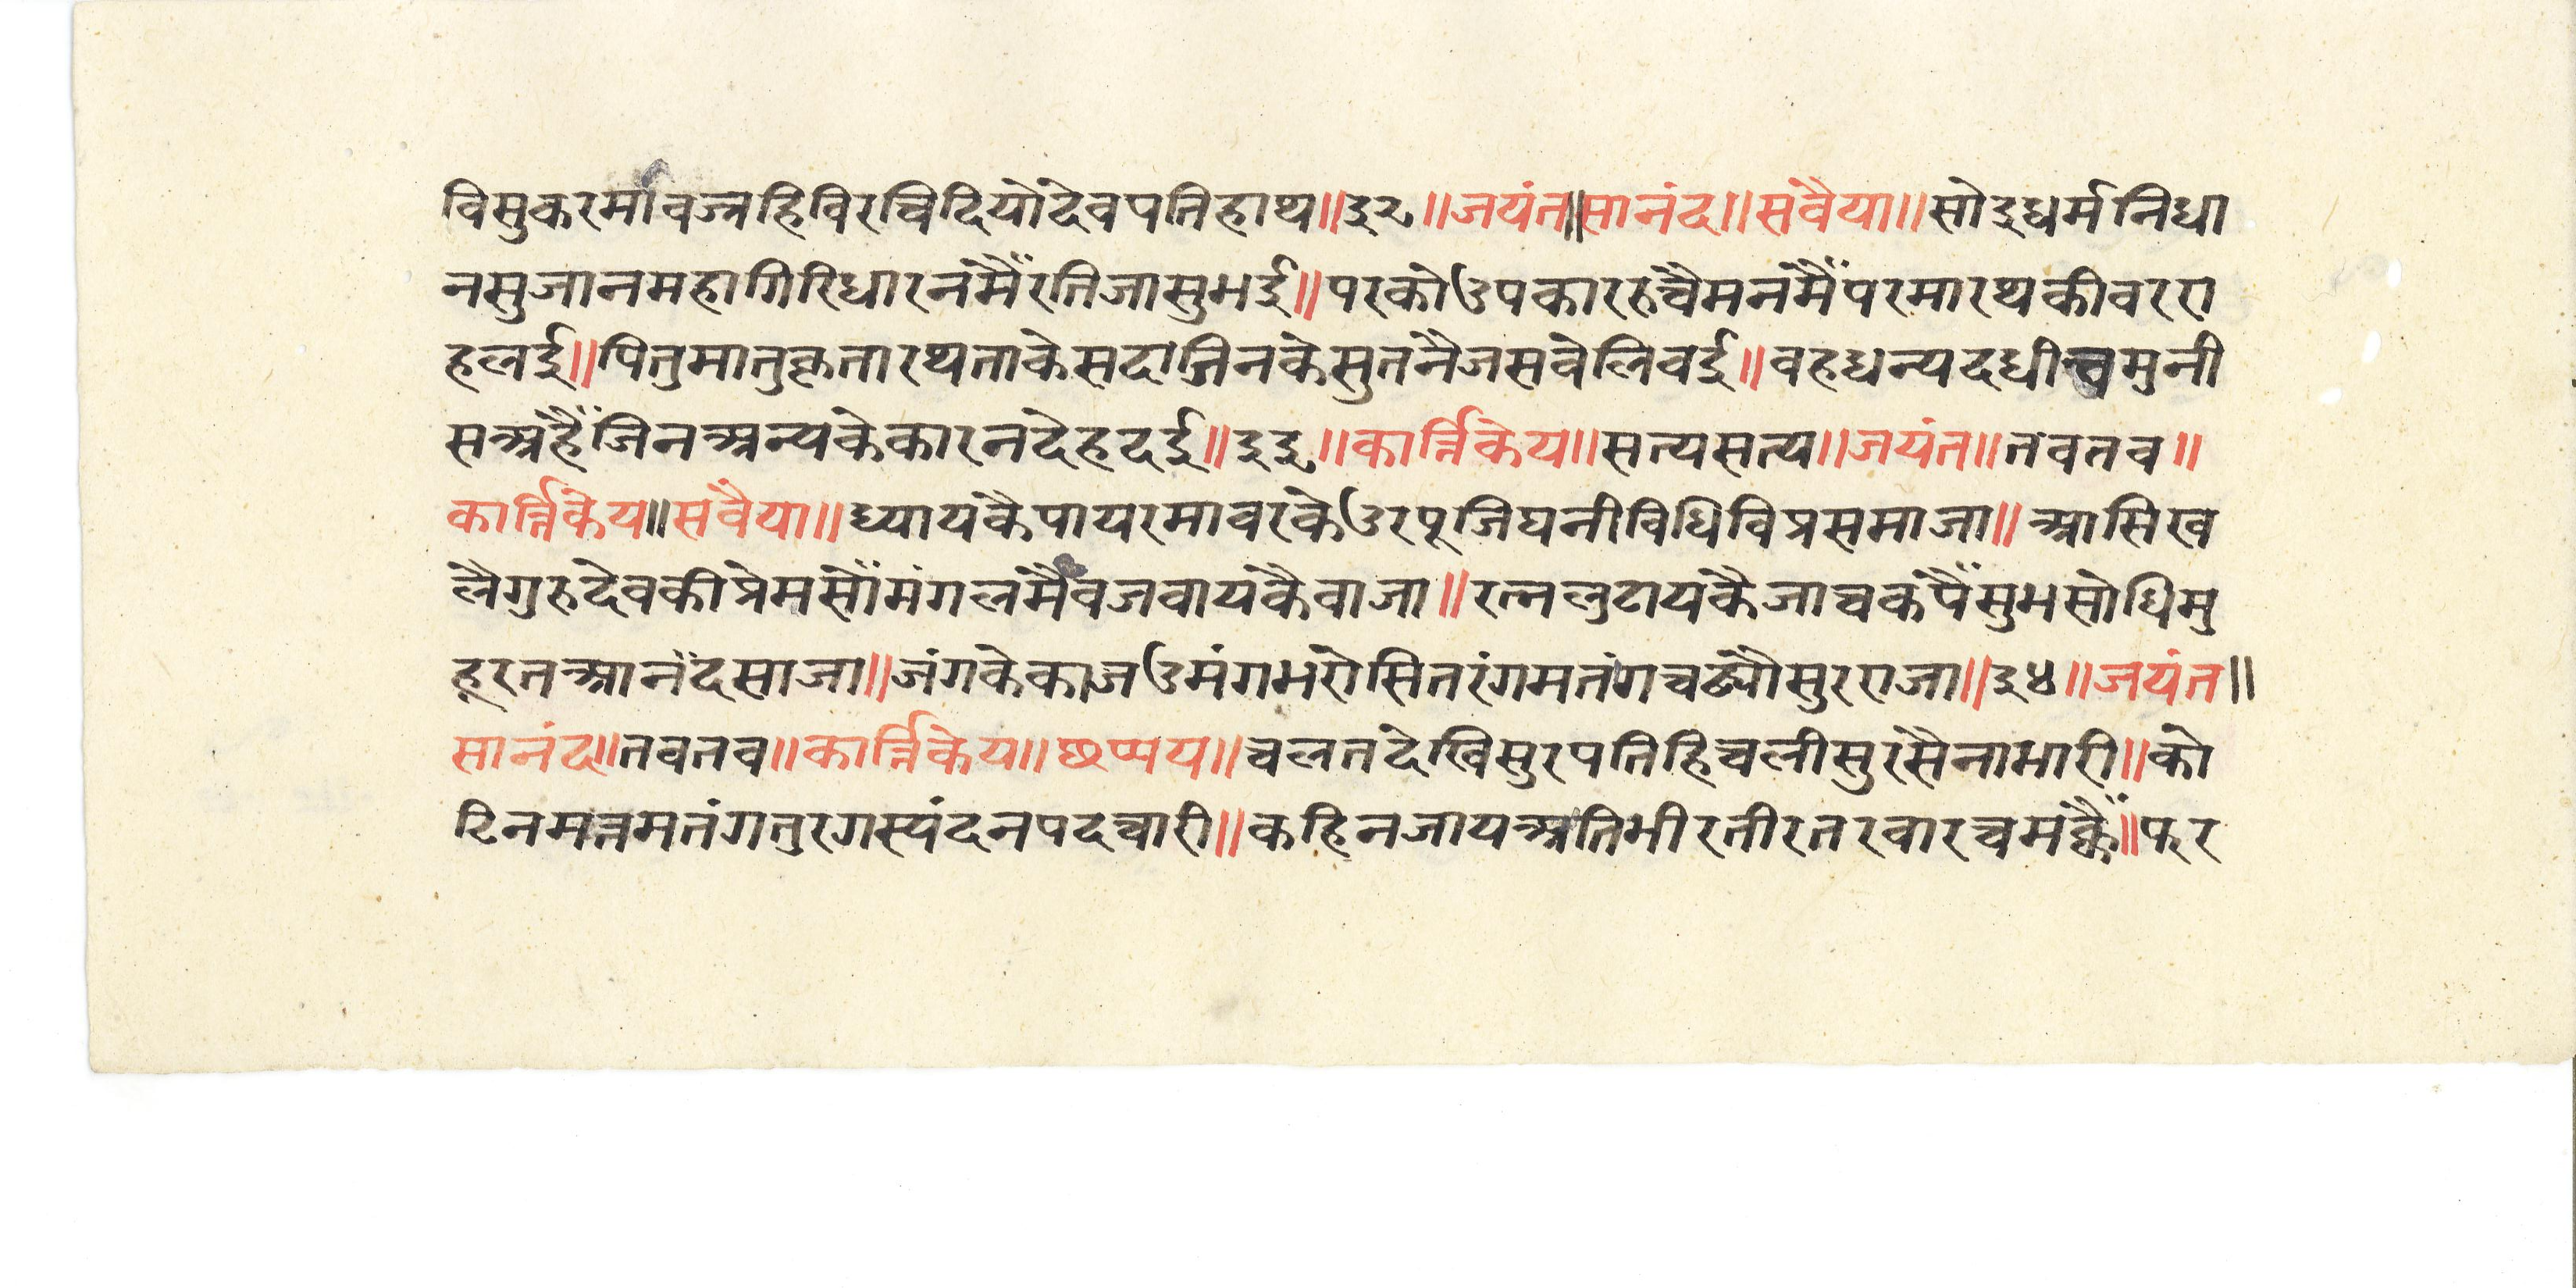 विसुकरमांवज्रहिविरचिदियोदेवपतिहाथ॥३२॥जयंत॥सानंद॥सवैया॥सोइधर्मनिधा
नसुजानमहागिरिधारनमैंरतिजासुभई॥परकोउपकाररुचैमनमैंपरमारथकीवररा
हलई॥पितुमातुकृतारथताकेसदाजिनकेसुतनैजसवेलिवई॥वहधन्यदधीचमुनी
सअहैंजिनअन्यकेकारनदेहदई॥३३॥कार्त्तिकेय॥सत्यसत्य॥जयंत॥तवतव॥
कार्त्तिकेय॥सवैया॥ध्यायकैपायरमावरकेउरपूजिघनीविधिविप्रसमाजा॥आसिख
लैगुरुदेवकीप्रेमसोंमंगलमैंवजवायकैवाजा॥रत्नलुटायकैजाचकपैंसुभसोधिमु
हूरतआनंदसाजा॥जंगकेकाजउमंगभरोसितरंगमतंगचढ्योसुरराजा॥३४॥जयंत॥
सानंद॥तवतव॥कार्त्तिकेय॥छप्पय॥चलतदेखिसुरपतिहिचलीसुरसैनाभारी॥को
टिनमत्तमतंगतुरगस्यंदनपदचारी॥कहिनजायअतिभीरतीरतरवारचमंक्कैं॥फर